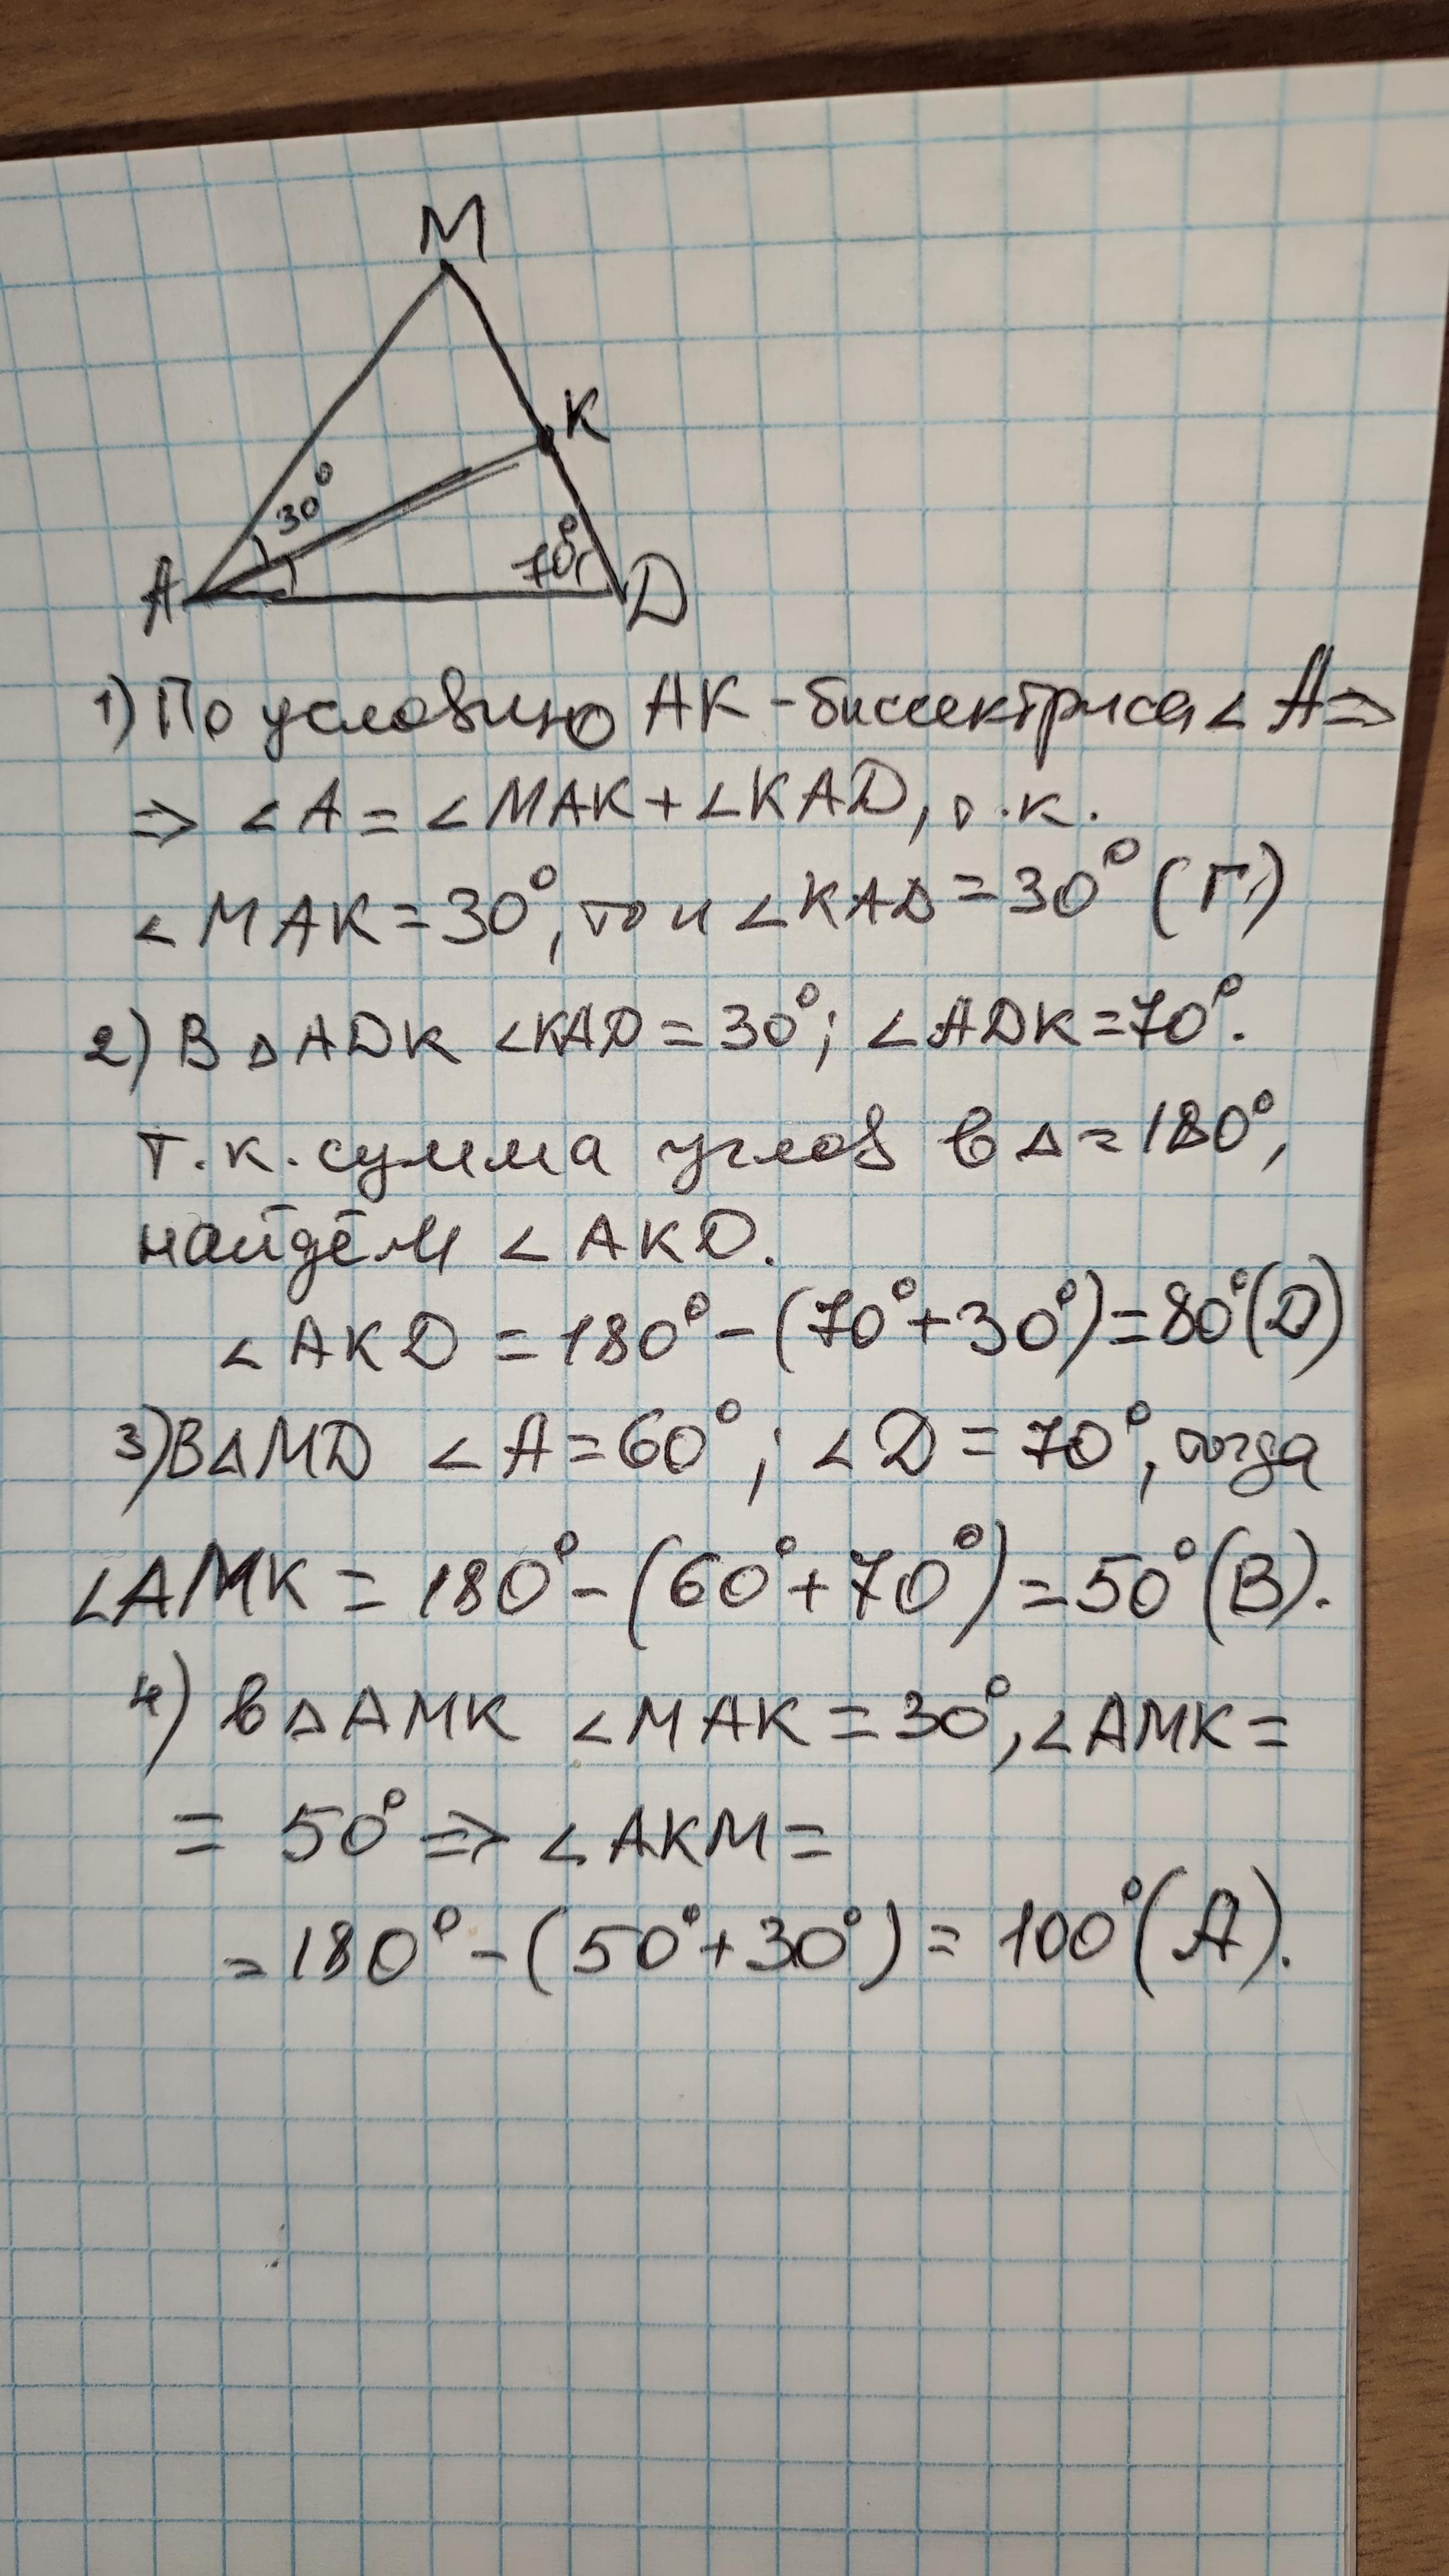 M
K
30°
70°
A
D
1) По условию AK - биссектриса ∠A ⇒
⇒ ∠A = ∠MAK + ∠KAD, т.к.
∠MAK = 30°, то и ∠KAD = 30° (Г)
2) В △ADK ∠KAD = 30°; ∠ADK = 70°.
т.к. сумма углов в △ = 180°,
найдём ∠AKD.
∠AKD = 180° - (70° + 30°) = 80° (D)
3) В △MD ∠A = 60°; ∠D = 70°, тогда
∠AMK = 180° - (60° + 70°) = 50° (В).
4) в △AMK ∠MAK = 30°, ∠AMK =
= 50° ⇒ ∠AKM =
= 180° - (50° + 30°) = 100° (А).